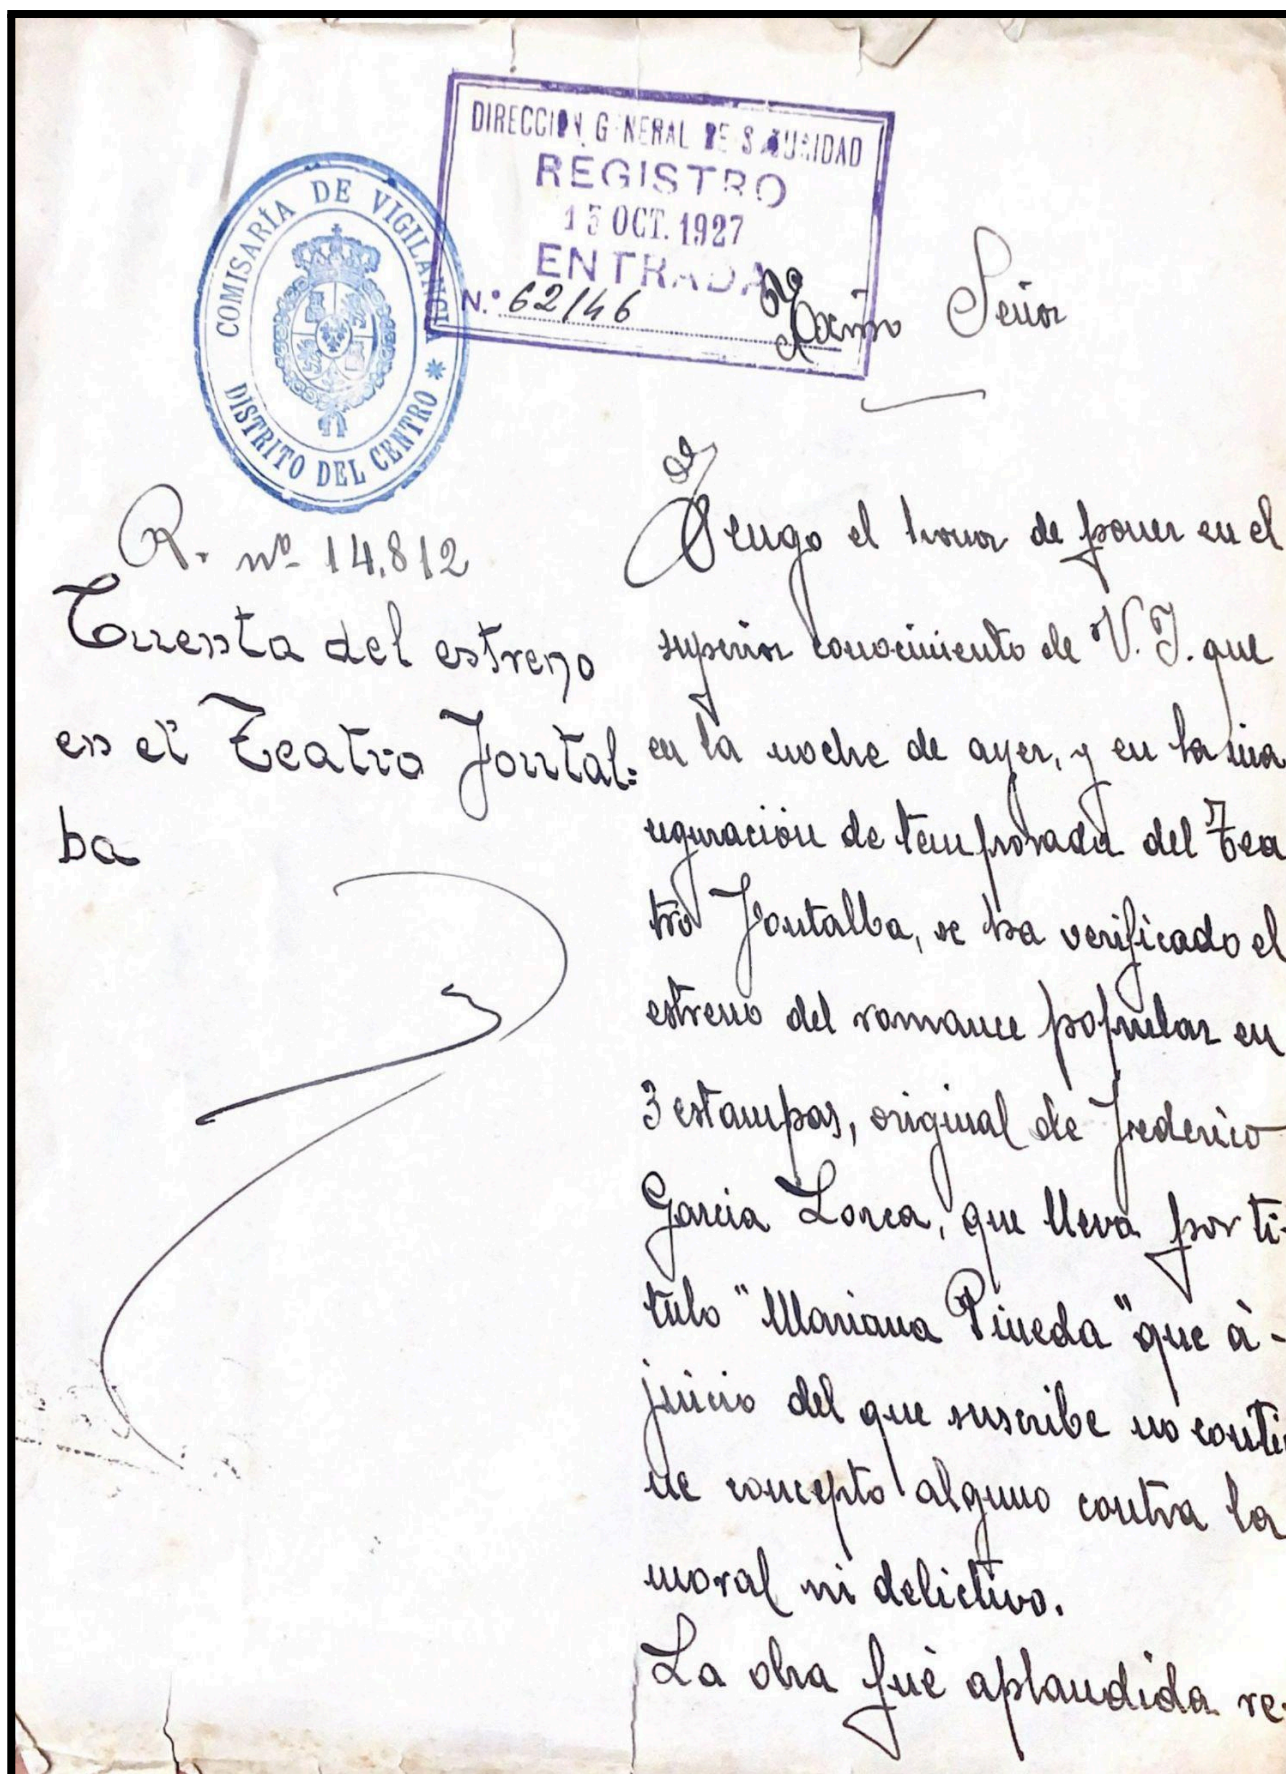 DIRECCION GENERAL DE SEGURIDAD
REGISTRO
13 OCT. 1927
ENTRADA
N.º 62146
COMISARÍA DE VIGILANCIA
DISTRITO DEL CENTRO
Excmo Señor
R. nº 14,812
Cuenta del estreno
en el Teatro Fontal=
ba
Tengo el honor de poner en el
superior conocimiento de V. I. que
en la noche de ayer, y en la ina
uguración de temporada del Tea
tro Fontalba, se ha verificado el
estreno del romance popular en
3 estampas, original de Frederico
Garcia Lorca, que lleva por ti-
tulo "Mariana Pineda" que à -
juicio del que suscribe no contie
ne concepto alguno contra la
moral ni delictivo.
La obra fué aplaudida re-